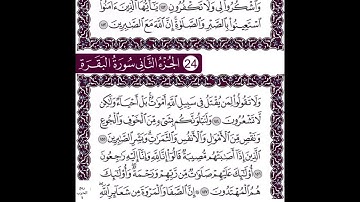 وَٱشْكُرُوا۟ لِى وَلَا تَكْفُرُونِ ١٥٢ يَـٰٓأَيُّهَا ٱلَّذِينَ ءَامَنُوا۟
ٱسْتَعِينُوا۟ بِٱلصَّبْرِ وَٱلصَّلَوٰةِ إِنَّ ٱللَّهَ مَعَ ٱلصَّـٰبِرِينَ ١٥٣
24 الجُزءُ الثَّانِى سُورَةُ البَقَرَةِ
وَلَا تَقُولُوا۟ لِمَن يُقْتَلُ فِى سَبِيلِ ٱللَّهِ أَمْوَٰتٌۢ بَلْ أَحْيَآءٌ وَلَـٰكِن
لَّا تَشْعُرُونَ ١٥٤ وَلَنَبْلُوَنَّكُم بِشَىْءٍ مِّنَ ٱلْخَوْفِ وَٱلْجُوعِ
وَنَقْصٍ مِّنَ ٱلْأَمْوَٰلِ وَٱلْأَنفُسِ وَٱلثَّمَرَٰتِ وَبَشِّرِ ٱلصَّـٰبِرِينَ ١٥٥
ٱلَّذِينَ إِذَآ أَصَـٰبَتْهُم مُّصِيبَةٌ قَالُوٓا۟ إِنَّا لِلَّهِ وَإِنَّآ إِلَيْهِ رَٰجِعُونَ
١٥٦ أُو۟لَـٰٓئِكَ عَلَيْهِمْ صَلَوَٰتٌ مِّن رَّبِّهِمْ وَرَحْمَةٌ وَأُو۟لَـٰٓئِكَ
هُمُ ٱلْمُهْتَدُونَ ١٥٧ إِنَّ ٱلصَّفَا وَٱلْمَرْوَةَ مِن شَعَآئِرِ ٱللَّهِ